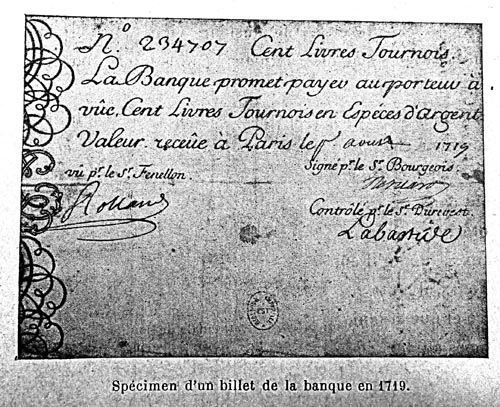 N.° 234707 Cent Livres Tournois.
La Banque promet payer au porteur à
vüe, Cent Livres Tournois en Espéces d'Argent,
Valeur receüe à Paris le aoust 1719
vû pr. le Sr. Fenellon.
Signé pr. le Sr. Bourgeois.
Contrôlé pr. le Sr. Durevest.
Labastide
Spécimen d'un billet de la banque en 1719.